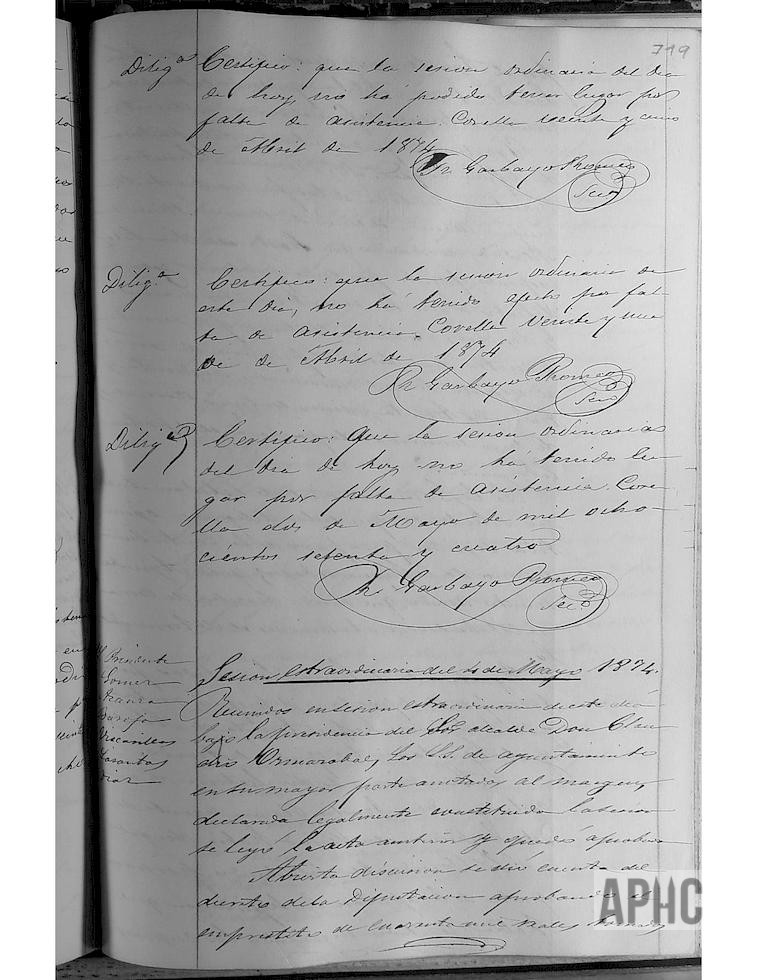 719
Dilig.ª Certifico: que la sesion ordinaria del dia
de hoy, no há podido tener lugar por
falta de asistencia. Corella veinte y cinco
de Abril de 1874
Fr. Garbayo Romeo
Sec.º
Dilig.ª Certifico: que la sesion ordinaria de
este dia, no há tenido efecto por fal-
ta de asistencia. Corella Veinte y nue
de Abril de 1874
Fr. Garbayo Romeo
Sec.º
Dilig.ª Certifico: Que la sesion ordinaria
del dia de hoy no há tenido lu-
gar por falta de asistencia. Core-
lla dos de Mayo de mil ocho-
cientos setenta y cuatro
Fr. Garbayo Romeo
Sec.º
Sesion estraordinaria del 4 de Mayo 1874.
Presidente
Gomez
Diaz
Reunidos en sesion estraordinaria de este dia
bajo la presidencia del Sor. alcalde Don Clau
dio Ormazabal, los S.S. de ayuntamiento
en su mayor parte anotados al margen,
declarada legalmente constituida la sesion
se leyó la acta anterior y quedó aprobada
Abierta discusion se dió cuenta del
decreto de la Diputacion aprobando el
emprestito de cuarenta mil reales
APHC